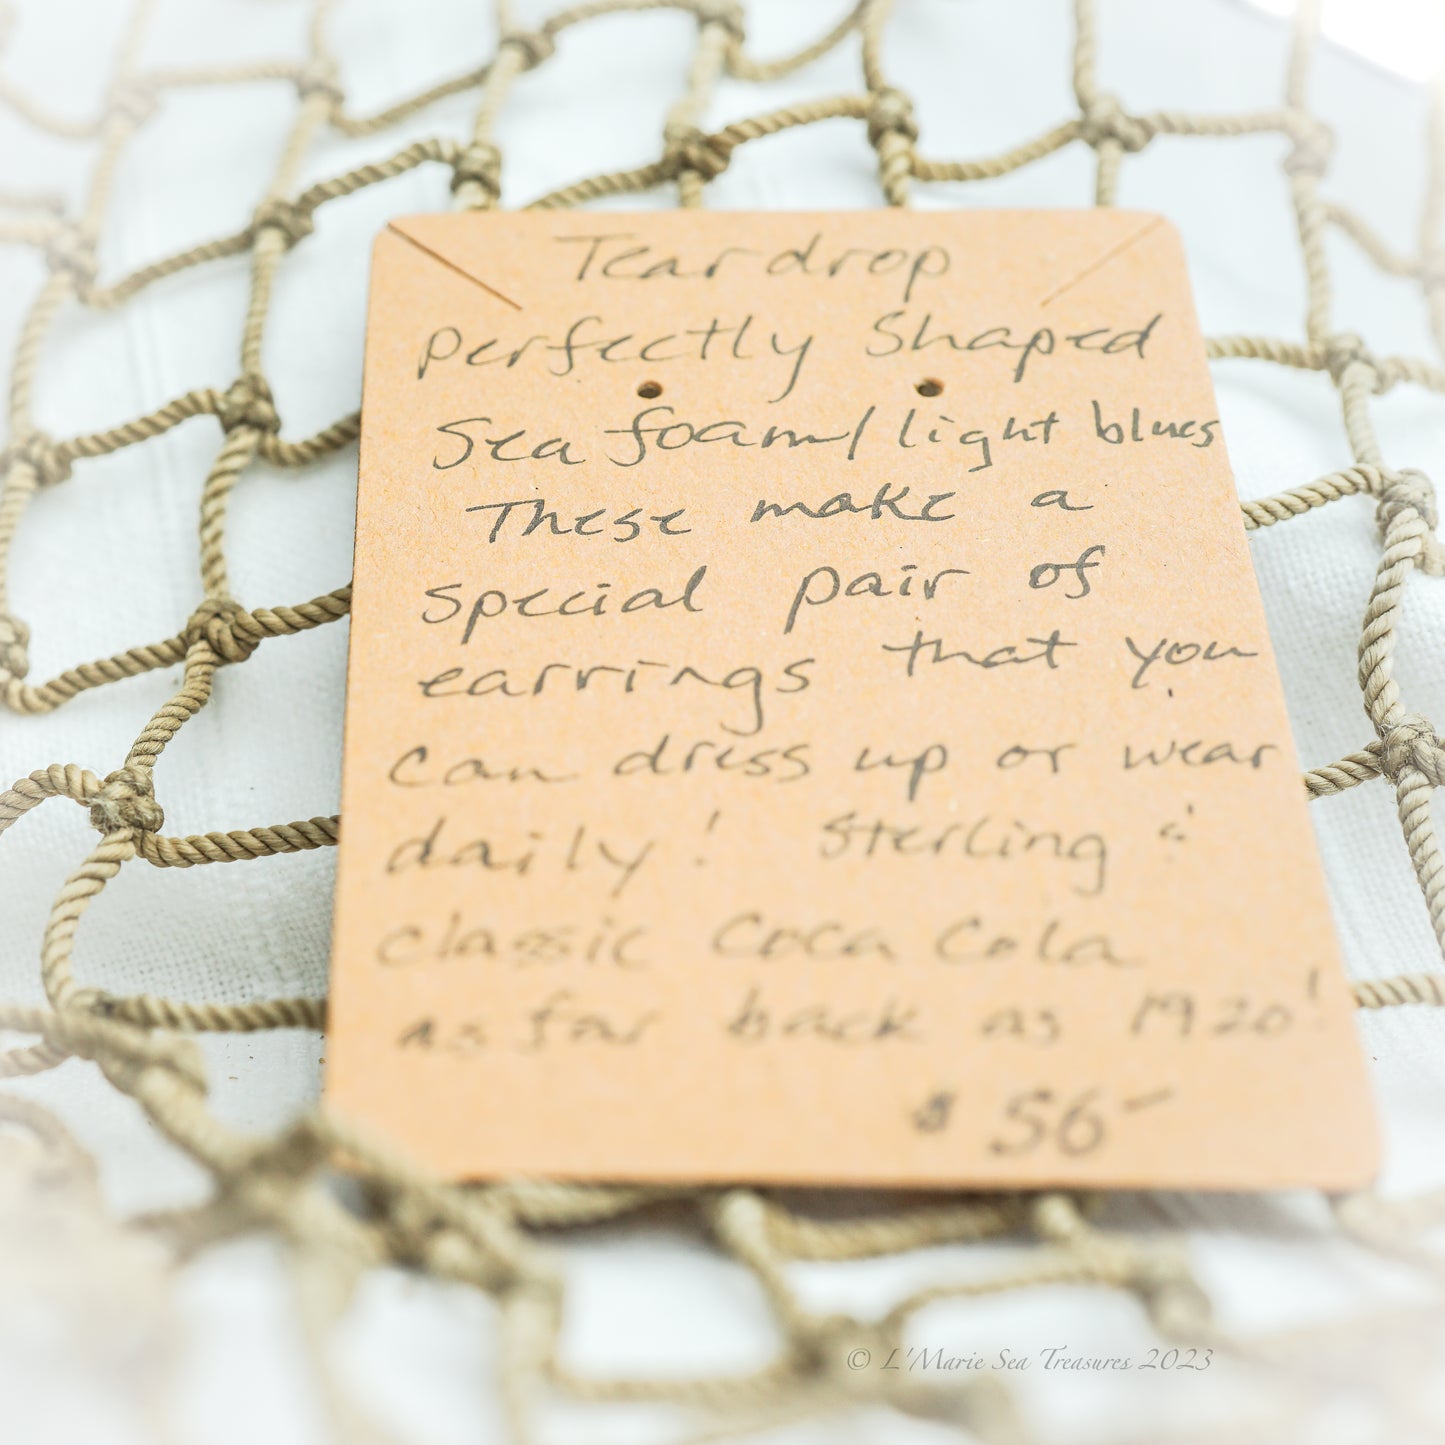 Teardrop
perfectly Shaped
Sea foam/light blues
These make a
special pair of
earrings that you
can dress up or wear
daily! Sterling &
classic Coca Cola
as far back as 1920!
$56-
© L'Marie Sea Treasures 2023